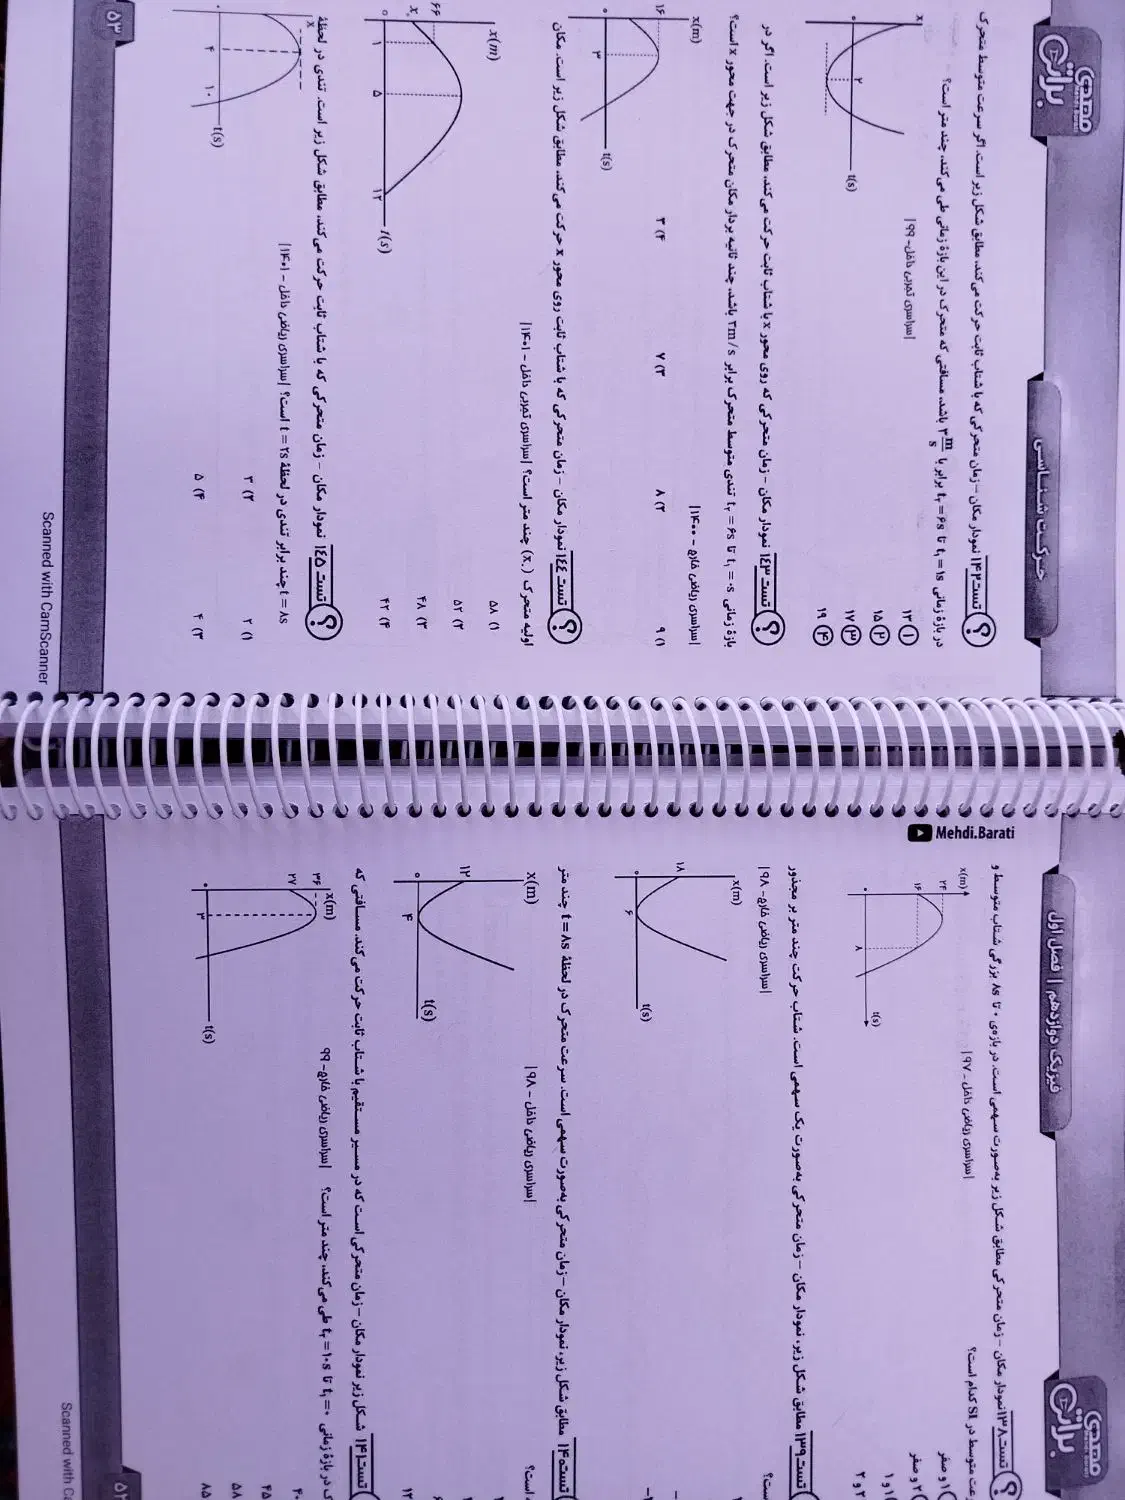 مهدی براتی
حرکت شناسی
تست ۱۴۲ نمودار مکان – زمان متحرکی که با شتاب ثابت حرکت می‌کند، مطابق شکل زیر است. اگر سرعت متوسط متحرک
در بازهٔ زمانی t₁ = ۱s تا t₂ = ۶s برابر با ۳ m/s باشد، مسافتی که متحرک در این بازهٔ زمانی طی می‌کند، چند متر است؟
|سراسری تجربی داخل - ۹۹|
x
۰
۲
t(s)
۱) ۱۳
۲) ۱۵
۳) ۱۷
۴) ۱۹
تست ۱۴۳ نمودار مکان – زمان متحرکی که روی محور x با شتاب ثابت حرکت می‌کند، مطابق شکل زیر است. اگر در
بازهٔ زمانی t₁ = ۰s تا t₂ = ۶s تندی متوسط متحرک برابر ۳m/s باشد، چند ثانیه بردار مکان متحرک در جهت محور x است؟
|سراسری ریاضی خارج - ۱۴۰۰|
x(m)
۱۶
۳
t(s)
۱) ۹
۲) ۸
۳) ۷
۴) ۳
تست ۱۴۴ نمودار مکان – زمان متحرکی که با شتاب ثابت روی محور x حرکت می‌کند، مطابق شکل زیر است. مکان
اولیه متحرک (x₀) چند متر است؟ |سراسری تجربی داخل - ۱۴۰۱|
x(m)
۶۶
x₀
۰
۱
۵
۱۲
t(s)
۱) ۵۸
۲) ۵۲
۳) ۴۸
۴) ۴۲
تست ۱۴۵ نمودار مکان – زمان متحرکی که با شتاب ثابت حرکت می‌کند، مطابق شکل زیر است. تندی در لحظهٔ
t = ۸s چند برابر تندی در لحظهٔ t = ۲s است؟ |سراسری ریاضی داخل - ۱۴۰۱|
x
۰
۴
۱۰
t(s)
۱) ۲
۲) ۳
۳) ۴
۴) ۵
۵۳
Scanned with CamScanner
Mehdi.Barati
فیزیک دوازدهم | فصل اول
مهدی براتی
تست ۱۳۸ نمودار مکان – زمان متحرکی مطابق شکل زیر به‌صورت سهمی است. در بازه‌ی ۰ تا ۸s بزرگی شتاب متوسط و
عت متوسط در SI کدام است؟ |سراسری ریاضی داخل - ۹۷|
x(m)
۲۴
۱۶
۰
۸
t(s)
۱ و صفر
۲ و صفر
۱ و ۱
۲ و ۲
تست ۱۳۹ مطابق شکل زیر، نمودار مکان – زمان متحرکی به‌صورت یک سهمی است. شتاب حرکت چند متر بر مجذور
ست؟ |سراسری ریاضی خارج - ۹۸|
x(m)
۱۸
۰
۶
t(s)
تست ۱۴۰ مطابق شکل زیر، نمودار مکان – زمان متحرکی به‌صورت سهمی است. سرعت متحرک در لحظهٔ t = ۸s چند متر
است؟ |سراسری ریاضی داخل - ۹۸|
x(m)
۱۲
۰
۴
t(s)
تست ۱۴۱ شکل زیر نمودار مکان – زمان متحرکی است که در مسیر مستقیم با شتاب ثابت حرکت می‌کند. مسافتی که
ک در بازهٔ زمانی t₁ = ۰ تا t₂ = ۱۰s طی می‌کند، چند متر است؟ |سراسری ریاضی خارج - ۹۹
x(m)
۳۶
۲۷
۰
۳
t(s)
۴۵
۵۸
۸۵
۵۲
Scanned with Ca